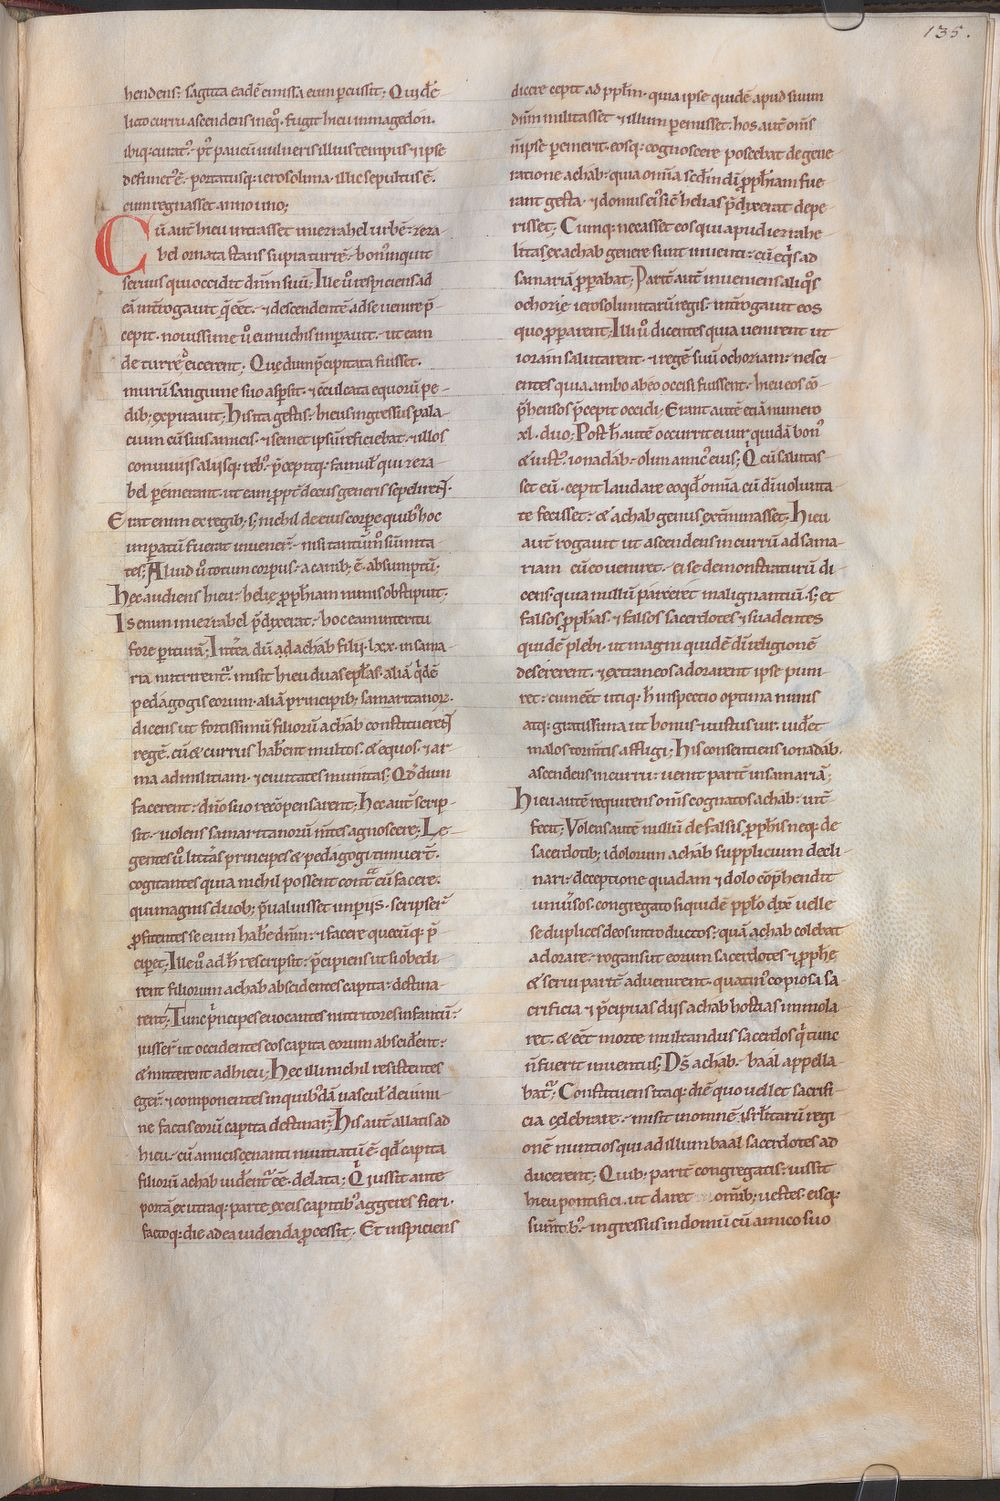 135.
hendens; sagitta eadē emissa eum percussit; Qui dē
licto curru ascendens in eq̄o. fugit hieu in magedon.
ibiq; curat᷑. p᷑t paucū uulneris illius tempus. ⁊ ipse
defunct᷑ ē. portatusq; ierosolima. illic sepultus ē.
cum regnasset anno uno;
Cū autē hieu intrasset in iezrahel urbē. zeza
bel ornata stans supra turrē. bon᷑ inquit
seruus qui occidit dn̄m suū; Ille ū respiciens ad
eā int̄rogauit q̄ eēt. ⁊ descendentē ad se uenire p̄
cepit. nouissime ū eunuchis imperauit. ut eam
de turre eicerent; Que dum p̄cipitata fuisset.
murū sanguine suo aspsit. ⁊ cculcata equorū pe
dib; expirauit; His ita gestis. hieu singressus pala
cium cū suis amicis. ⁊ semet ipsū reficiebat. ⁊ illos
conuiuiis aliisq; reb᷑. p̄cepitq; famul᷑ qui zeza
bel peremerant. ut eam ppt̄ decus generis sepelirent.
Erat enim ex regib; s; nichil de eius corpore quib᷑ hoc
imperatū fuerat inuener̄. nisi tantūm᷑ sūmita
tes; Aliud ū totum corpus. a canib; ē absumptū;
Hec audiens hieu. helie pphetiam nimis obstipuit;
Is enim in iezrahel p̄dixerat. hoc eam interitu
fore perituram; Int̄ea dū adachab filii. lxx. in sama
ria nutrirent᷑. misit hieu duas epl̄as. aliā q̄dē
pedagogis eorum. aliā principib; samaritanor̄.
dicens ut fortissimū filiorū achab constituerent
regē. cū & currus habent multos. & equos. ⁊ ar
ma ad militiam. ⁊ ciuitates munitas; Qd̄ dum
facerent. dn̄o suo recōpensarent; Hec autē scrip
sit. uolens samaritanorū m̄tes agnoscere; Le
gentes ū litt̄as principes & pedagogi timuer̄t.
cogitantes quia nichil possent cont̄ eū facere.
qui magnis duob; p̄ualuisset imperiis. scripser̄
profitentes se eum habere dn̄m. ⁊ facere quecūq; p̄
ciperet; Ille ū ad h̄ rescripsit. p̄cipiens ut si obedi
rent filiorum achab abscidentes capita. destina
rent; Tunc p̄ncipes euocantes nutritores infantū.
iusser̄ ut occidentes eos capita eorum absciderent.
& mitterent ad hieu; Hec illi nichil resistentes
eger̄. ⁊ componentes in quib᷑dā uascul᷑ de uimi
ne factis eorū capita destinar̄; His autē allatis ad
hieu. cū amicis cenanti nuntiatū ē. qd̄ capita
filiorū achab uiderent᷑ eē delata; Qi iussit ante
portā ex utraq; parte ex eis capitib᷑ aggeres fieri.
factoq; die ad ea uidenda pcessit; Et inspiciens
dicere cepit ad pplm̄. quia ipse quidē apud suum
dn̄m militasset ⁊ illum peremisset. hos autē om̄s
n̄ ipse peremerit. eosq; cognoscere poscebat de gene
ratione achab. quia om̄ia scd̄m dī pphetiam fue
rant gesta. ⁊ domus ei᷑ sic̄ helias p̄dixerat depe
risset; Cumq; necasset eos qui apud iezrahe
litas ex achab genere sunt inuenti. cū eq̄s ad
samariā properabat; Partē autē inueniens aliq̄s
ochozie ierosolimitarū regis. int̄rogauit eos
quo properarent; Illi ū dicentes quia uenirent ut
ioram salutarent. ⁊ regē suū ochoziam. nesci
entes quia ambo ab eo occisi fuissent. hieu eos cō
p̄hensos p̄cepit occidi; Erant autē etiā numero
xl. duo; Post h̄ autē occurrit ei uir quidā bon᷑
& iust᷑. ionadab. olim amic᷑ eius; Qi cū salutas
set eū. cepit laudare eo qd̄ om̄ia cū dī uolunta
te fecisset. & achab genus ext̄minasset. Hieu
autē rogauit ut ascendens in currū ad sama
riam cū eo ueniret. ei se demonstraturū di
cens. quia nullū parceret malignantiū. s; et
falsos pphetas. ⁊ falsos sacerdotes ⁊ suadentes
quidē plebi. ut magni quidē dī religionē
desererent. ⁊ extraneos adorarent ipse puni
ret. cum eēt utiq; h̄ inspectio optima nimis
atq; gratissima ut bonus ⁊ iustus uir. uideret
malos torm̄tis affligi; His consentiens ionadab.
ascendens in curru. uenit partē in samariā;
Hieu autē requirens om̄s cognatos achab. int̄
fecit; Volens autē nullū de falsis pphetis neq; de
sacerdotib; idolorum achab supplicium decli
nari. deceptione quadam ⁊ dolo cōp̄hendit
uniūsos. congregato siquidē pplo dixit uelle
se duplices deos introductos. quā achab colebat
adorare. rogans ut eorum sacerdotes ⁊ pphete
& serui partē aduenirent. quatin᷑ copiosa sa
crificia ⁊ p̄cipuas diis achab hostias immola
ret. & eēt morte multandus sacerdos q̄ tunc
n̄ fuerit inuentus; Ds̄ achab. baal appella
bat᷑; Constituens itaq; diē quo uellet sacrifi
cia celebrare. misit in omnē isrl̄itarū regi
onē nuntios qui ad illum baal sacerdotes ad
ducerent; Quib; partē congregatis. iussit
hieu pontifici. ut daret omīb; uestes. eisq;
sumtib᷑. ingressus in domū cū amico suo